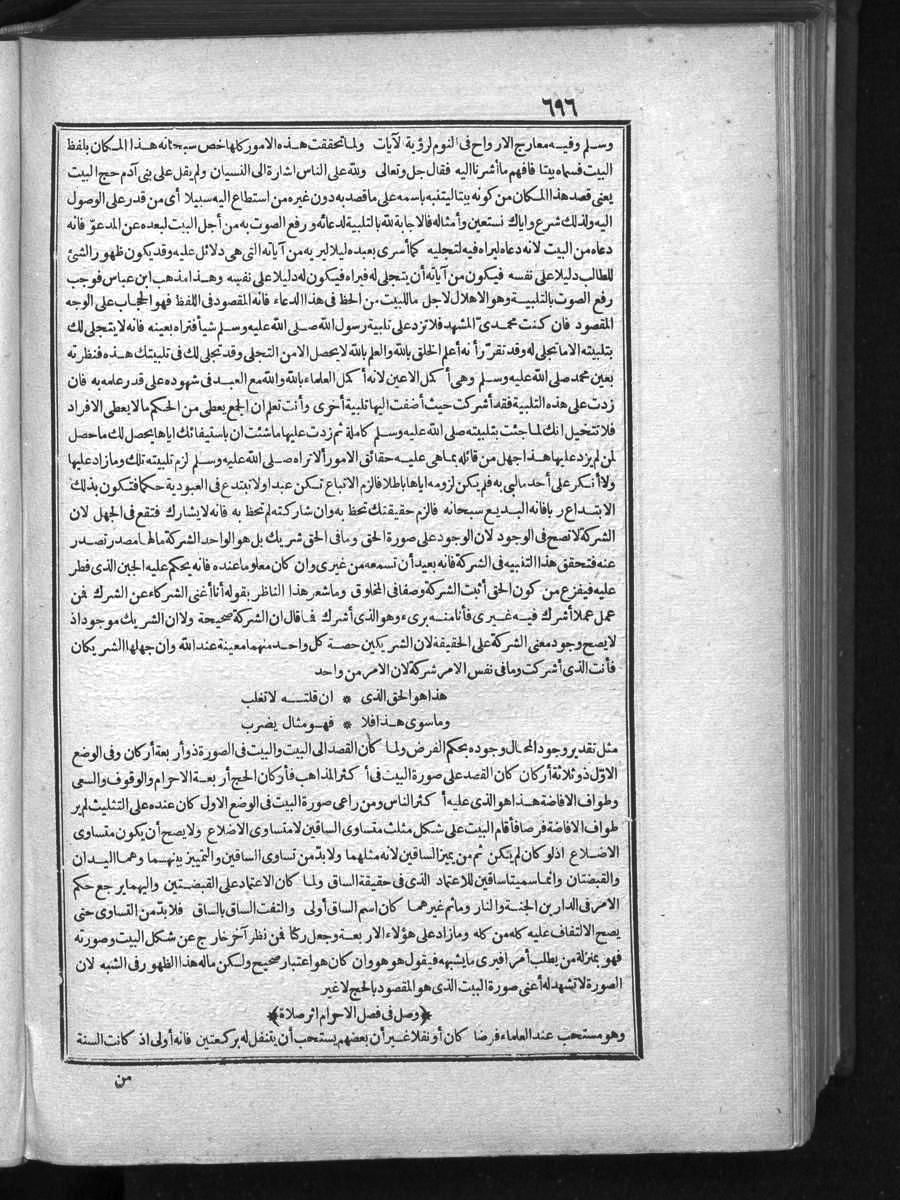 ٦٩٦
وسلم وفيه معارج الارواح فى النوم لرؤية الآيات ولما تحققت هذه الامور كلها خص سبحانه هذا المكان بلفظ
البيت فسماه بيتا فافهم ما أشرنا اليه فقال جل وتعالى ولله على الناس اشارة الى النسيان ولم يقل على بنى آدم حج البيت
يعنى قصد هذا المكان من كونه بيتا ليتنبه باسمه على ما قصد به دون غيره من استطاع اليه سبيلا أى من قدر على الوصول
اليه ولذلك شرع واياك نستعين وأمثاله فالاجابة لله بالتلبية لدعائه ورفع الصوت به من أجل البيت لبعده عن المدعو فانه
دعاه من البيت لانه دعاه ليراه فيه لتجليه كما أسرى بعبده ليلا ليريه من آياته التى هى دلائل عليه وقد يكون ظهور الشئ
للطالب دليلا على نفسه فيكون من آياته أن يتجلى له فيراه فيكون له دليلا على نفسه وهذا مذهب ابن عباس فوجب
رفع الصوت بالتلبية وهو الاهلال لاجل ما للبيت من الحظ فى هذا الدعاء فانه المقصود فى اللفظ فهو الحجاب على الوجه
المقصود فان كنت محمدىّ المشهد فلا تزد على تلبية رسول الله صلى الله عليه وسلم شيأ فتراه بعينه فانه لا يتجلى لك
بتلبيته الا ما تجلى له وقد تقرّر أنه أعلم الخلق بالله والعلم بالله لا يحصل الا من التجلى وقد تجلى لك فى تلبيتك هذه فنظرته
بعين محمد صلى الله عليه وسلم وهى أكمل الاعين لانه أكمل العلماء بالله والله مع العبد فى شهوده على قدر علمه به فان
زدت على هذه التلبية فقد أشركت حيث أضفت اليها تلبية أخرى وأنت تعلم ان الجمع يعطى من الحكم ما لا يعطى الافراد
فلا تتخيل انك لما جئت بتلبيته صلى الله عليه وسلم كاملة ثم زدت عليها ما شئت ان باستيفائك اياها يحصل لك ما حصل
لمن لم يزد عليها هذا جهل من قائله بما هى عليه حقائق الامور ألا تراه صلى الله عليه وسلم لزم تلبيته تلك وما زاد عليها
ولا أنكر على أحد ما لبى به فلم يكن لزومه اياها باطلا فالزم الاتباع تكن عبدا ولا تبتدع فى العبودية حكما فتكون بذلك
الابتداع ربا فانه البديع سبحانه فالزم حقيقتك تحظ به وان شاركته لم تحظ به فانه لا يشارك فتقع فى الجهل لان
الشركة لا تصح فى الوجود لان الوجود على صورة الحق وما فى الحق شريك بل هو الواحد الشركة مالها مصدر تصدر
عنه فتحقق هذا التنبيه فى الشركة فانه بعيد أن تسمعه من غيرى وان كان معلوما عنده فانه يحكم عليه الجبن الذى فطر
عليه فيفزع من كون الحق أثبت الشركة وصفا فى المخلوق وما شعر هذا الناظر بقوله أنا أغنى الشركاء عن الشرك فمن
عمل عملا أشرك فيه غيرى فأنا منه برىء وهو الذى أشرك فما قال ان الشركة صحيحة ولا ان الشريك موجود اذ
لا يصح وجود معنى الشركة على الحقيقة لان الشريكين حصة كل واحد منهما معينة عند الله وان جهلها الشريكان
فأنت الذى أشركت وما فى نفس الامر شركة لان الامر من واحد
هذا هو الحق الذى * ان قلته لا تغلب
وما سوى هذا فلا * فهو مثال يضرب
مثل تقدير وجود المحال وجوده بحكم الفرض ولما كان القصد الى البيت والبيت فى الصورة ذو أربعة أركان وفى الوضع
الاوّل ذو ثلاثة أركان كان القصد على صورة البيت فى أكثر المذاهب فأركان الحج أربعة الاحرام والوقوف والسعى
وطواف الافاضة هذا هو الذى عليه أكثر الناس ومن راعى صورة البيت فى الوضع الاول كان عنده على التثليث لم ير
طواف الافاضة فرضا فأقام البيت على شكل مثلث متساوى الساقين لا متساوى الاضلاع ولا يصح أن يكون متساوى
الاضلاع اذ لو كان لم يكن ثم من يميز الساقين لانه مثلهما ولابدّ من تساوى الساقين والتمييز بينهما وهما اليدان
والقبضتان وانما سميتا ساقين للاعتماد الذى فى حقيقة الساق ولما كان الاعتماد على القبضتين واليهما يرجع حكم
الامر فى الدارين الجنة والنار وما ثم غيرهما كان اسم الساق أولى والتفت الساق بالساق فلابدّ من التساوى حتى
يصح الالتفاف عليه كله من كله وما زاد على هؤلاء الاربعة وجعل ركنا فمن نظر آخر خارج عن شكل البيت وصورته
فهو بمنزلة من يطلب أمرا فيرى ما يشبهه فيقول هو هو وان كان هو اعتبار صحيح ولكن ماله هذا الظهور فى الشبه لان
الصورة لا تشهد له أعنى صورة البيت الذى هو المقصود بالحج لا غير
﴿وصل فى فصل الاحرام اثر صلاة﴾
وهو مستحب عند العلماء فرضا كان أو نفلا غير أن بعضهم يستحب أن يتنفل له بركعتين فانه أولى اذ كانت السنة
من